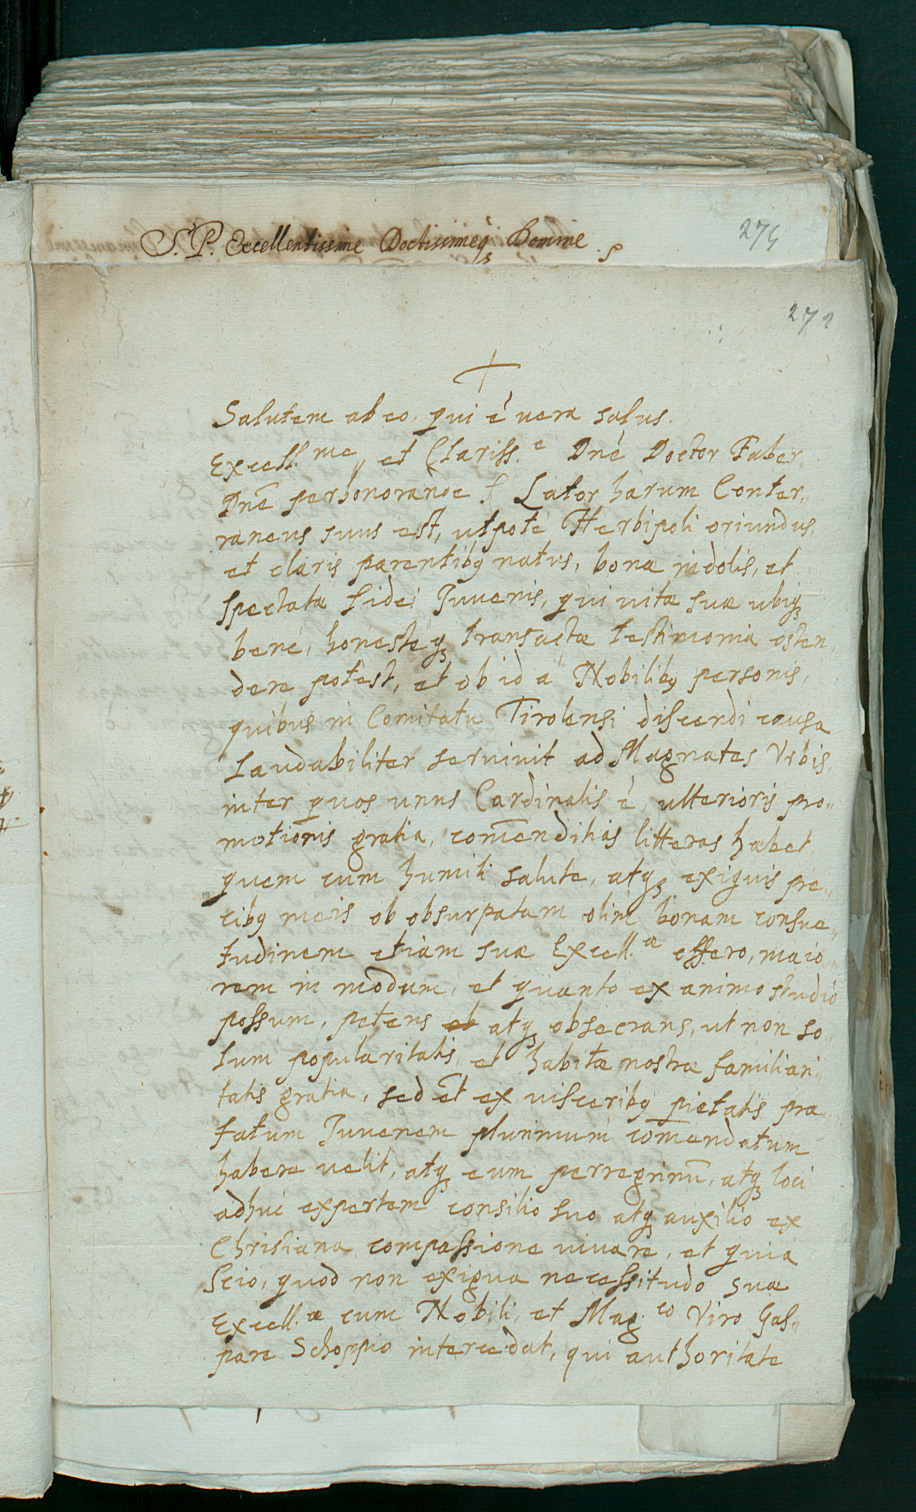 S. P. Excellentissime Doctissimeq3 Domine.
275
272
Salutem ab eo qui ē vera salus.
Excell.me et Clariss.e Dnē Doctor Faber,
Dnē perhonorande. Lator harum Conter,,
raneus suus est, utpotè Herbipoli oriundus,
et claris parentibq natus, bonæ indolis, et
spectatæ fidei Juvenis, qui vitæ suæ ubiq3
benè, honestèq3 transactæ testimonia osten,,
dere potest, et ob id à Nobilibq personis,
quibus in Comitatu Tirolensi discendi causa
laudabiliter servivit ad Magnates Vrbis,
inter quos unus Cardinalis ē, ulterioris pro,,
motionis gratia, com̄endititias litteras habet,
quem cum humili salute, atq3 exiguis pre,,
cibq meis ob obsurpatam olim bonam consue,,
tudinem etiam suæ Excell.æ offero, maio,,
rem in modum, et quanto ex animo studio
possum, petens ob atq3 obsecrans, ut non so,,
lum popularitatis, et habitæ nostræ familiari,,
tatis gratia, sed et̄ ex visceribq pietatis præ,,
fatum Juvenem plurimum com̄endatum
habere velit, atq3 eum perregrinū, atq3 loci
adhuc expertem consilio suo atq3 auxilio ex
Christiana compassione iuvare, et quia
scio, quod non exigua necessitudo suæ
Excell.æ cum Nobili, et Mag.co Viro Gas,,
pare Schoppio intercedat, qui authoritate